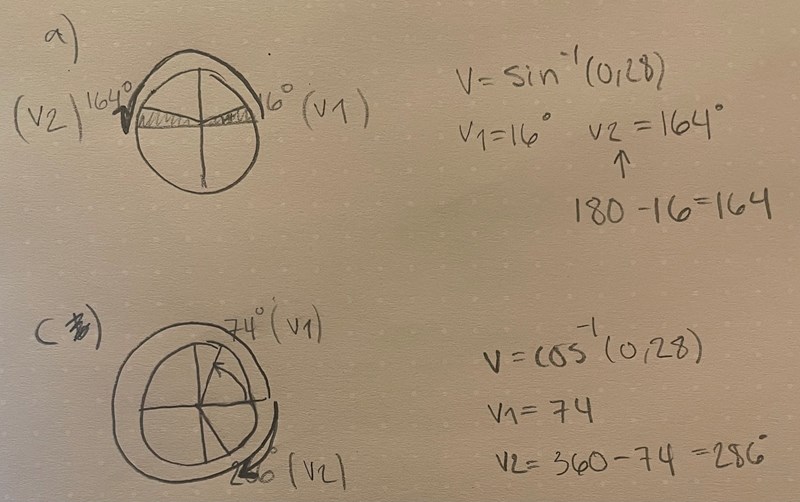 a)
(v2) 164° 16° (v1)
v = sin⁻¹(0,28)
v1 = 16° v2 = 164°
↑
180 - 16 = 164
c)
74° (v1)
286° (v2)
v = cos⁻¹(0,28)
v1 = 74
v2 = 360 - 74 = 286°